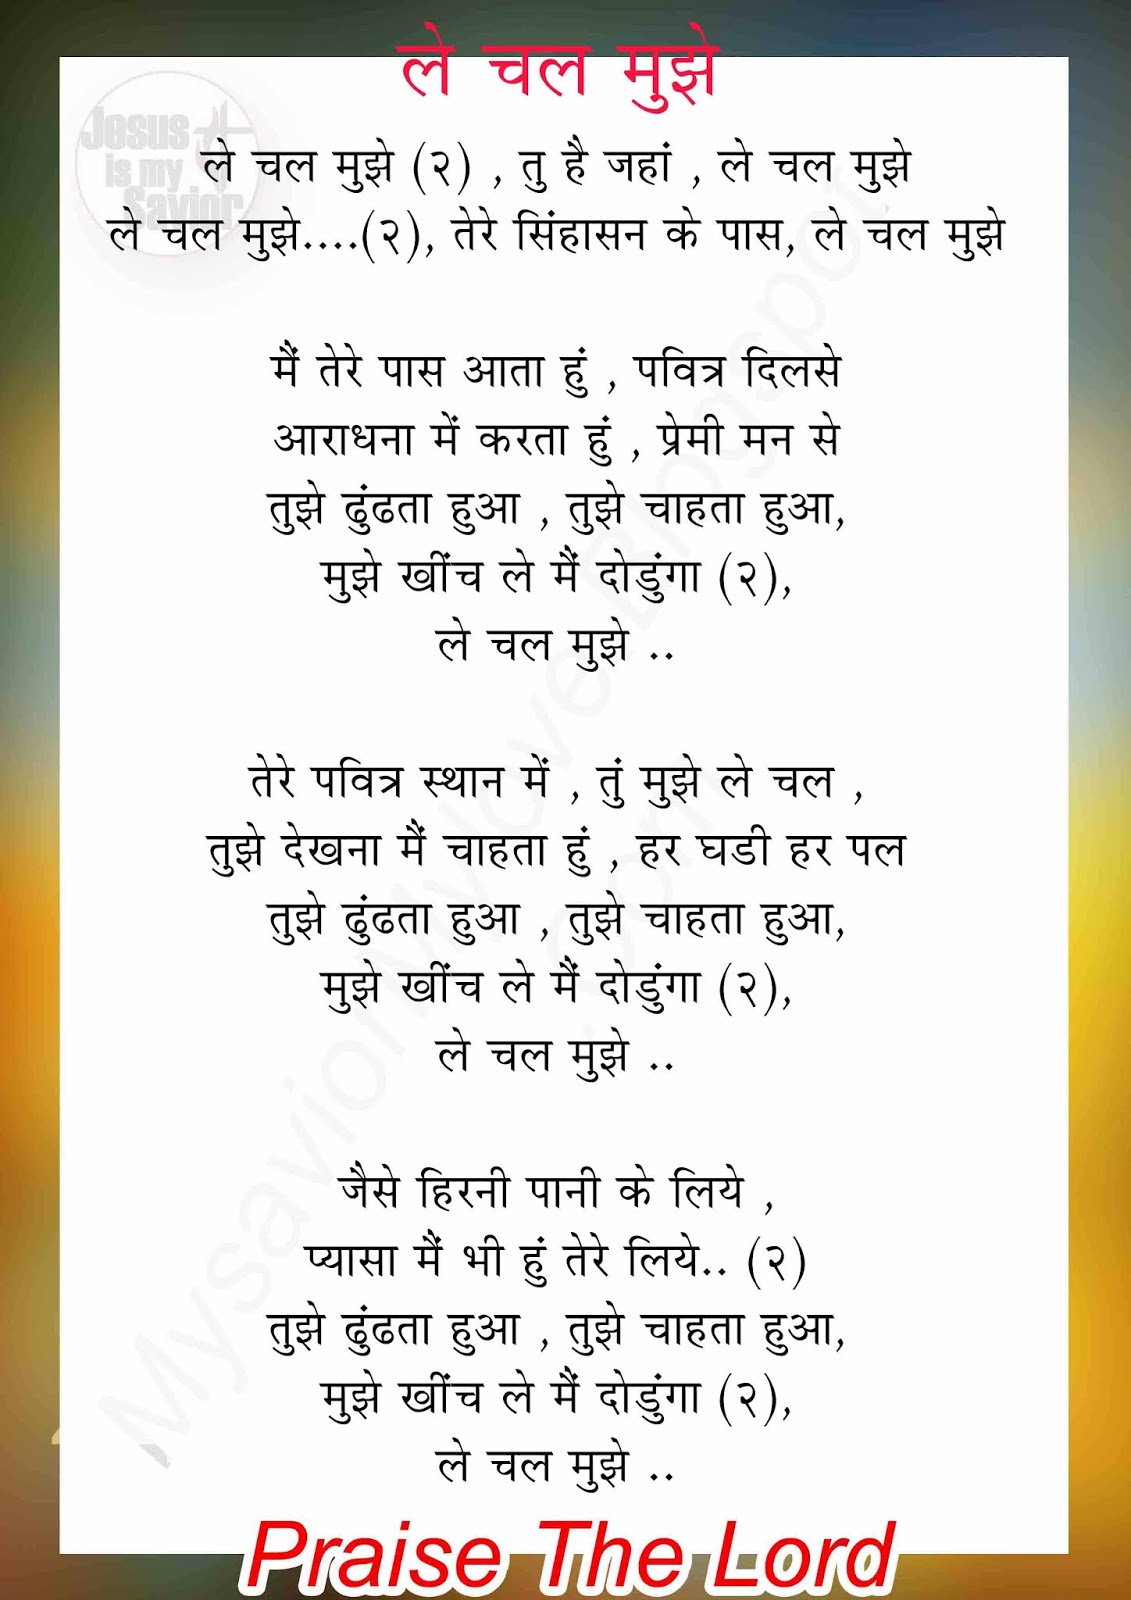 ले चल मुझे
Jesus
is my
Savior
ले चल मुझे (२) , तु है जहां , ले चल मुझे
ले चल मुझे....(२), तेरे सिंहासन के पास, ले चल मुझे
मैं तेरे पास आता हुं , पवित्र दिलसे
आराधना में करता हुं , प्रेमी मन से
तुझे ढुंढता हुआ , तुझे चाहता हुआ,
मुझे खींच ले मैं दोडुंगा (२),
ले चल मुझे ..
तेरे पवित्र स्थान में , तुं मुझे ले चल ,
तुझे देखना मैं चाहता हुं , हर घडी हर पल
तुझे ढुंढता हुआ , तुझे चाहता हुआ,
मुझे खींच ले मैं दोडुंगा (२),
ले चल मुझे ..
जैसे हिरनी पानी के लिये ,
प्यासा मैं भी हुं तेरे लिये.. (२)
तुझे ढुंढता हुआ , तुझे चाहता हुआ,
मुझे खींच ले मैं दोडुंगा (२),
ले चल मुझे ..
Praise The Lord